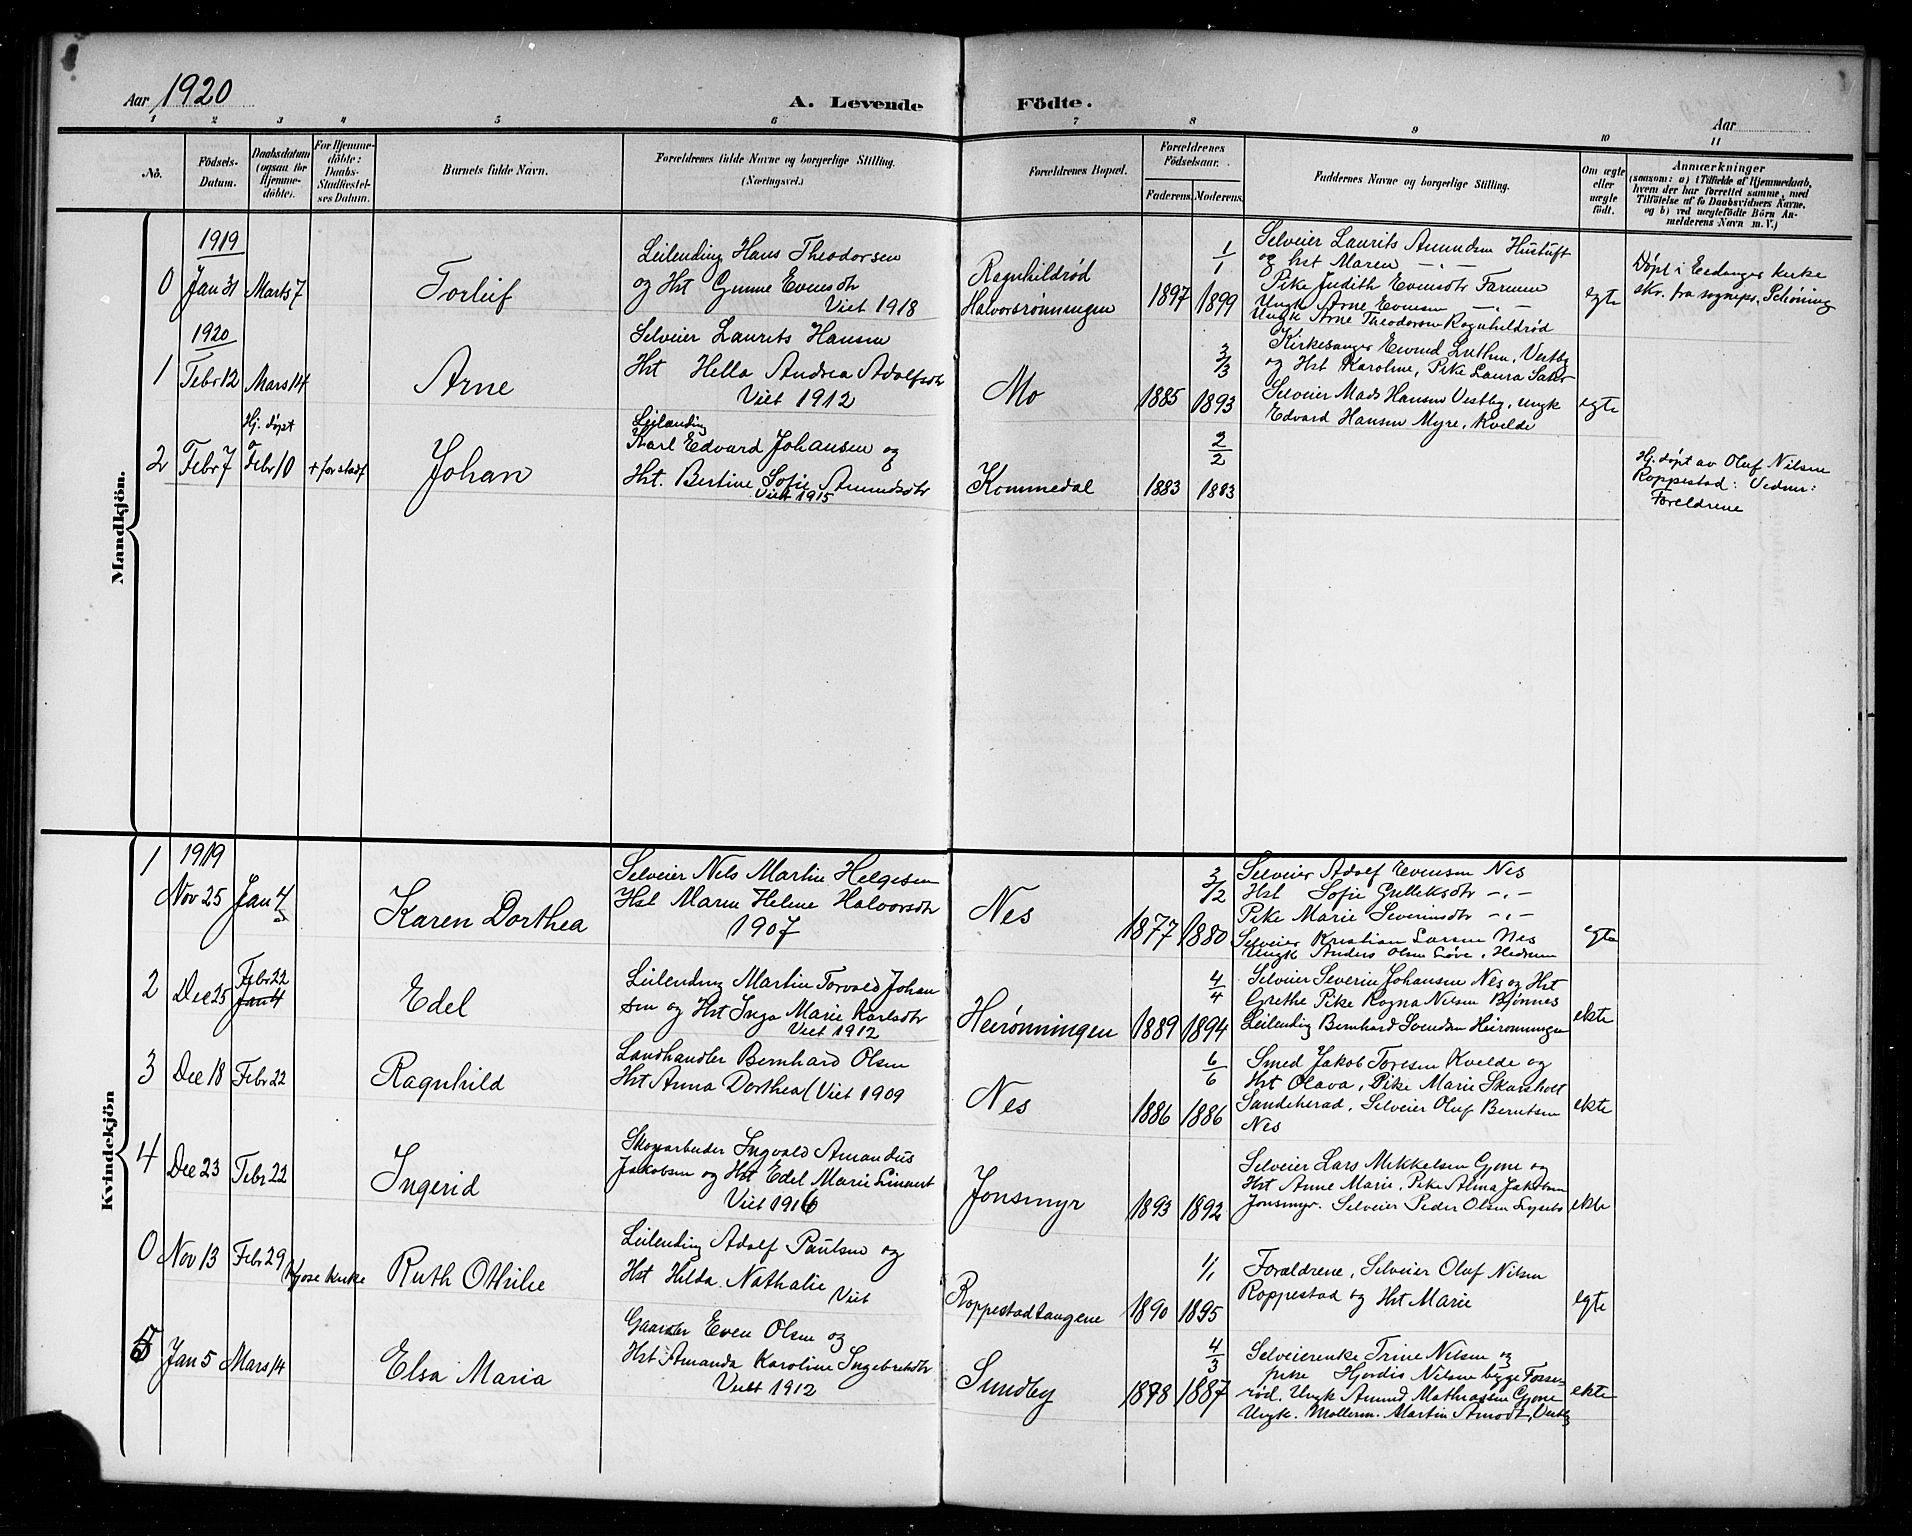 Aar 1920
A. Levende Födte.
Aar
1 2 3 4 5 6 7 8 9 10 11
No.
Födsels-Datum.
Daabsdatum (ogsaa for Hjemmedöbte).
For Hjemmedöbte: Daabs-Stadfæstelses Datum.
Barnets fulde Navn.
Forældrenes fulde Navne og borgerlige Stilling. (Næringsvei.)
Forældrenes Bopæl.
Forældrenes Födselsaar.
Faderens. Moderens.
Faddernes Navne og borgerlige Stilling.
Om ægte eller uægte födt.
Anmærkninger
(saasom: a) i Tilfælde af Hjemmedaab,
hvem der har forrettet samme, med
Tilföielse af to Daabsvidners Navne,
og b) ved uægtefödte Börn An-
melderens Navn m. V.)
Mandkjön.
1919
0 Jan 31 Marts 7
Torleif
Leilending Hans Theodorsen
og Hst Gunne Evensdtr
Viet 1918
Ragnhildrød
Halvorsrønningen
1897 1899
1/1
Selveier Laurits Amundsen Hustuft
og hst Maren -"-
Pike Judith Evensdtr Farmen
Ungk Arne Evensen -"-
Ungk Arne Theodorsen Ragnhildrød
egte
Døpt i Eidanger kirke
skr. fra sognepr. Schøning
1920
1 Febr 12 Mars 14
Arne
Selveier Laurits Hansen
Hst Hella Andrea Adolfsdtr
Viet 1912
Mo
1885 1893
3/3
Kirkesanger Eivind Luthen, Vestby
og Hst Karoline, Pike Laura
Selveier Mads Hansen Vestby, ungk
Edvard Hansen Myre, Kvelde
egte
2 Febr 7
Hj. døpt
Febr 10
+ før stadf
Johan
Leilending
Karl Edvard Johansen og
Hst. Bertine Sofie Amundsdtr
Viet 1915
Kommedal
1883 1883
2/2
Hj. døpt av Oluf Nilsen
Roppestad: Vedner:
Foreldrene
Kvindekjön
1 1919
Nov 25 Jan 4
Karen Dorthea
Selveier Nels Martin Helgesen
Hst Maren Helene Halvorsdtr
1907
Nes
1877 1880
3/2
Selveier Adolf Evensen Nes
Hst Sofie Grelleksdtr -"-
Pike Marie Severinsdtr -"-
Selveier Kristian Larsen Nes
Ungk Anders Olsen Løve, Hedrum
egte
2 Dec 25
Febr 22
Jan 4
Edel
Leilending Martin Torvald Johan
sen og Hst Inga Marie Karlsdtr
Viet 1912
Heirønningen
1889 1894
4/4
Selveier Severin Johansen Nes og Hst
Grethe Pike Ragna Nilsen Bjønnes
Leilending Bernhard Svendsen Heirønningen
ekte
3 Dec 18 Febr 22
Ragnhild
Landhandler Bernhard Olsen
Hst Anna Dorthea (Viet 1909
Nes
1886 1886
6/6
Smed Jakob Toresen Kvelde og
Hst Olava, Pike Marie Skarsholt
Sandeherad, Selveier Oluf Berntsen
Nes
ekte
4 Dec 23 Febr 22
Ingerid
Skogsarbeider Ingvald Amandus
Jakobsen og Hst Edel Marie
Viet 1916
Jonsmyr
1893 1892
Selveier Lars Mikkelsen Gjone og
Hst Anne Marie, Pike Alina Jakobsen
Jonsmyr. Selveier Peder Olsen
ekte
0 Nov 13 Febr 29
Kjose kirke
Ruth Othilie
Leilending Adolf Paulsen og
Hst Hilda Nathalie
Viet
Roppestadtangene
1890 1895
1/1
Forældrene, Selveier Oluf Nilsen
Roppestad og Hst Marie
egte
5 Jan 5 Mars 14
Elsa Maria
Gaardbr Even Olsen og
Hst Amanda Karoline Ingebretsdtr
Viet 1912
Sundby
1878 1887
4/3
Selveierenke Trine Nilsen og
pike Hjørdis Nilsen begge Fosse
rød. Ungk Amund Mathiassen Gjone
Ungk. Møllerm. Martin Amodt, Vestby
ekte